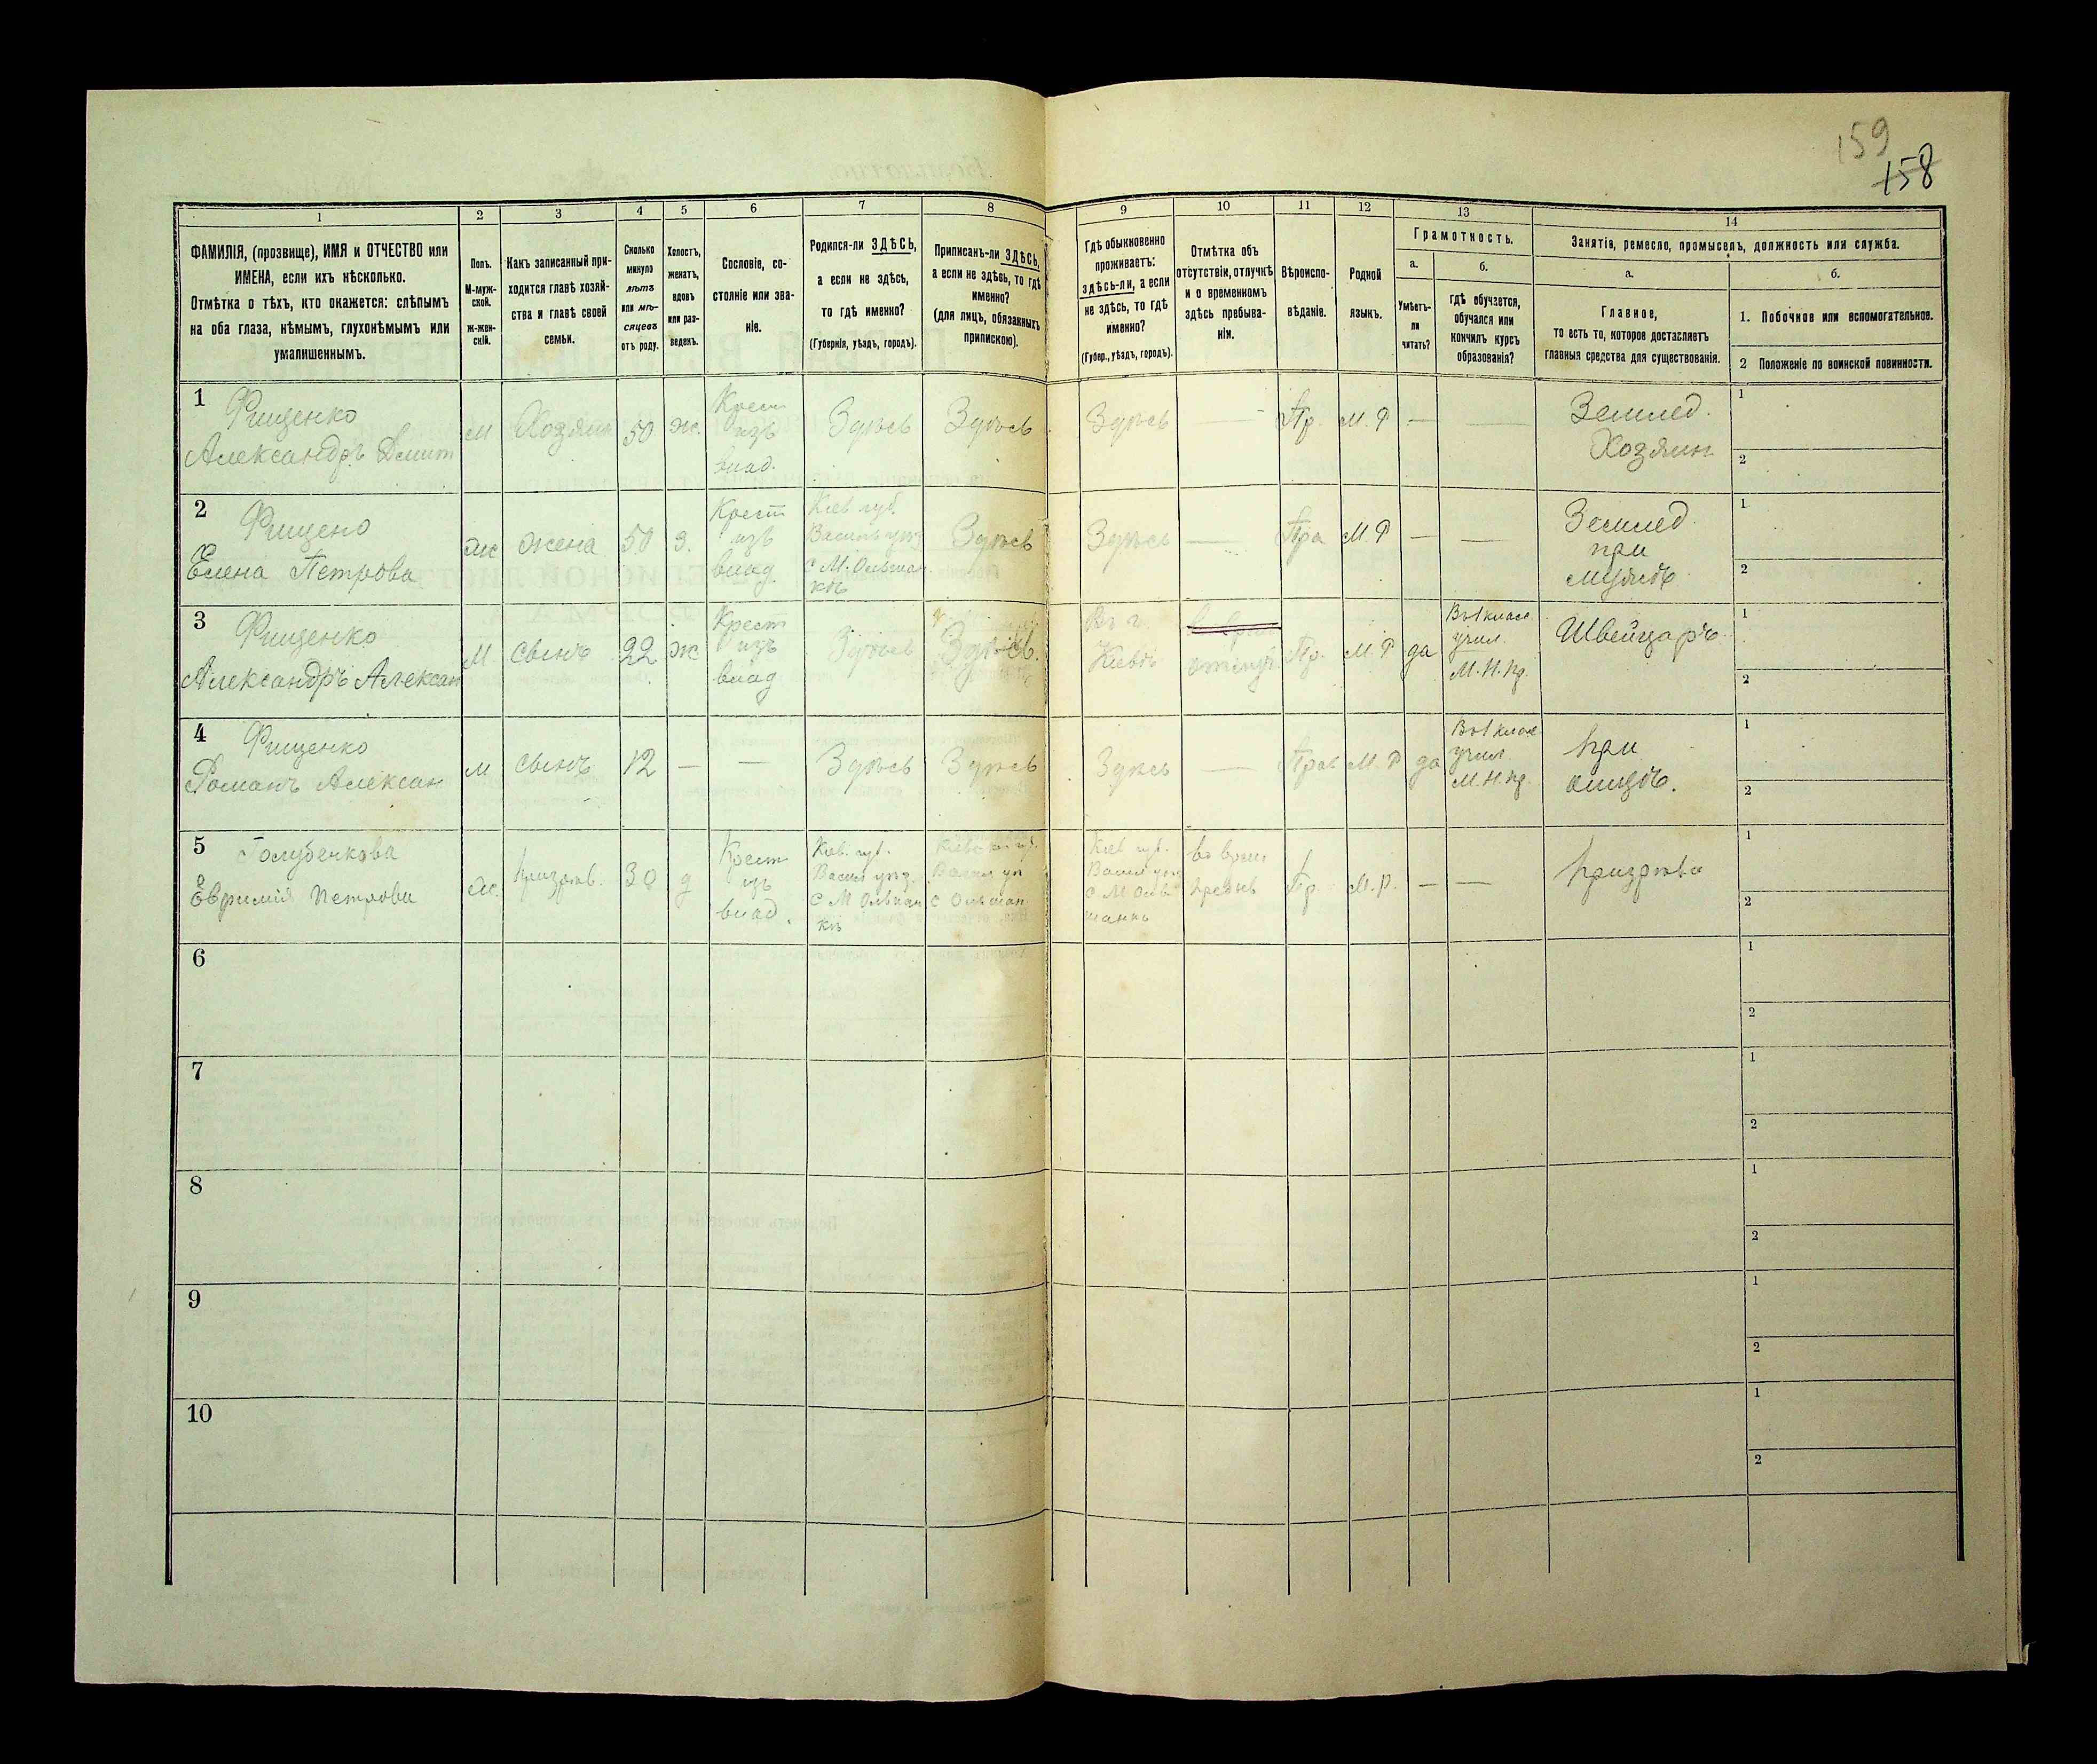 159
158
1
2
3
4
5
6
7
8
9
10
11
12
13
14
ФАМИЛІЯ, (прозвище), ИМЯ и ОТЧЕСТВО или
ИМЕНА, если ихъ нѣсколько.
Отмѣтка о тѣхъ, кто окажется: слѣпымъ
на оба глаза, нѣмымъ, глухонѣмымъ или
умалишеннымъ.
Полъ.
М-муж-
ской.
Ж-жен-
скій.
Какъ записанный при-
ходится главѣ хозяй-
ства и главѣ своей
семьи.
Сколько
минуло
лѣтъ
или мѣ-
сяцевъ
отъ роду.
Холостъ,
женатъ,
вдовъ
или раз-
веденъ.
Сословіе, со-
стояніе или зва-
ніе.
Родился-ли ЗДѢСЬ,
а если не здѣсь,
то гдѣ именно?
(Губернія, уѣздъ, городъ).
Приписанъ-ли ЗДѢСЬ,
а если не здѣсь, то гдѣ
именно?
(для лицъ, обязанныхъ
припискою).
Гдѣ обыкновенно
проживаетъ:
здѣсь-ли, а если
не здѣсь, то гдѣ
именно?
(Губер., уѣздъ, городъ).
Отмѣтка объ
отсутствіи, отлучкѣ
и о временномъ
здѣсь пребыва-
ніи.
Вѣроиспо-
вѣданіе.
Родной
языкъ.
Грамотность.
а.
Умѣетъ-
ли
читать?
б.
гдѣ обучается,
обучался или
кончилъ курсъ
образованія?
Занятія, ремесло, промыселъ, должность или служба.
а.
Главное,
то есть то, которое доставляетъ
главныя средства для существованія.
б.
1. Побочное или вспомогательное.
2 Положеніе по воинской повинности.
1
Фищенко
Александръ Дмит
м
Хозяин
50
ж.
Крест
изъ
влад.
Здѣсь
Здѣсь
Здѣсь
—
Пр.
М. Р
—
—
Землед.
Хозяин
1
2
2
Фищено
Елена Петрова
ж
жена
50
з.
Крест
изъ
влад
Кіев губ.
Василь уѣз
с М. Ольшан
кѣ
Здѣсь
Здѣсь
—
Пра
М. Р
—
—
Землед
при
мужѣ
1
2
3
Фищенко
Александръ Алексан
м
сынъ
22
ж
Крест
изъ
влад
Здѣсь
Здѣсь.
Въ г.
Кіевѣ
отлуч.
Пр.
М. Р
да
Въ 1 класс
учил.
М. Н. пр.
Швейцаръ
1
2
4
Фищенко
Романъ Алексан
м
сынъ
12
—
—
Здѣсь
Здѣсь
Здѣсь
—
Прав
М. Р
да
Въ 1 класс
учил
М. Н. пр.
при
отцѣ.
1
2
5
Голубенкова
Евфимія Петрова
ж.
призрѣв.
30
д
Крест
изъ
влад.
Кіев. губ.
Васил уѣз.
с М Ольшан
кѣ
Кіевск губ.
Васил уѣ
с Ольшан
Кіев губ.
Васил уѣз
с М Оль
шанкѣ
во врем
Пр
М. Р.
—
—
призрѣва
1
2
6
1
2
7
1
2
8
1
2
9
1
2
10
1
2